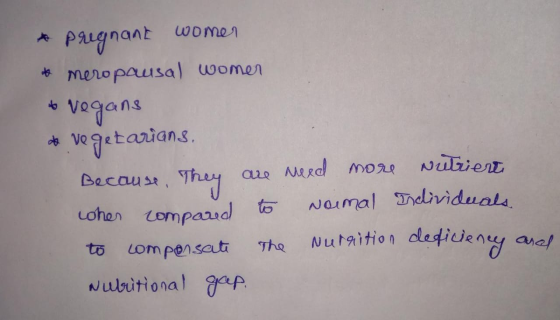 * pregnant women
* menopausal women
* vegans
* vegetarians.
Because, They are Need more Nutrient
when compared to Normal Individuals.
to compensate The Nutrition deficiency and
Nutritional gap.